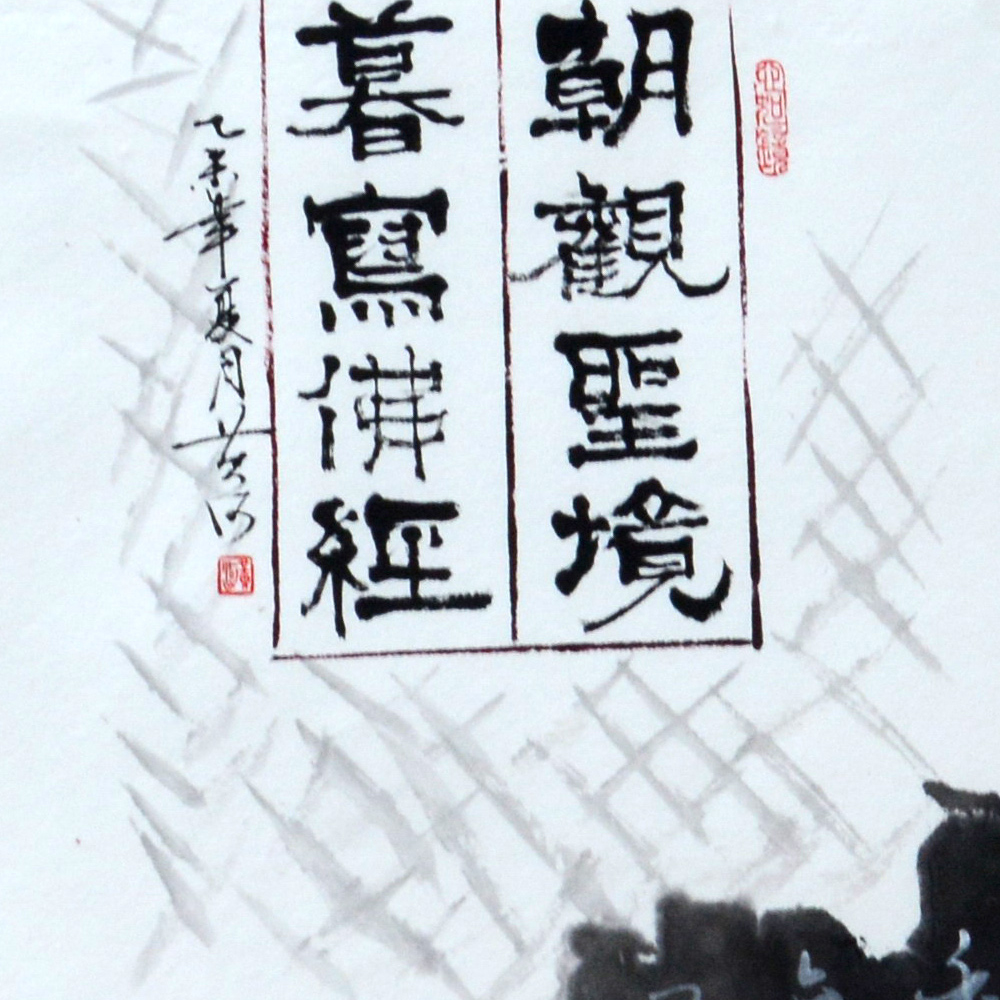 朝觀聖境
暮寫佛經
乙未年夏月